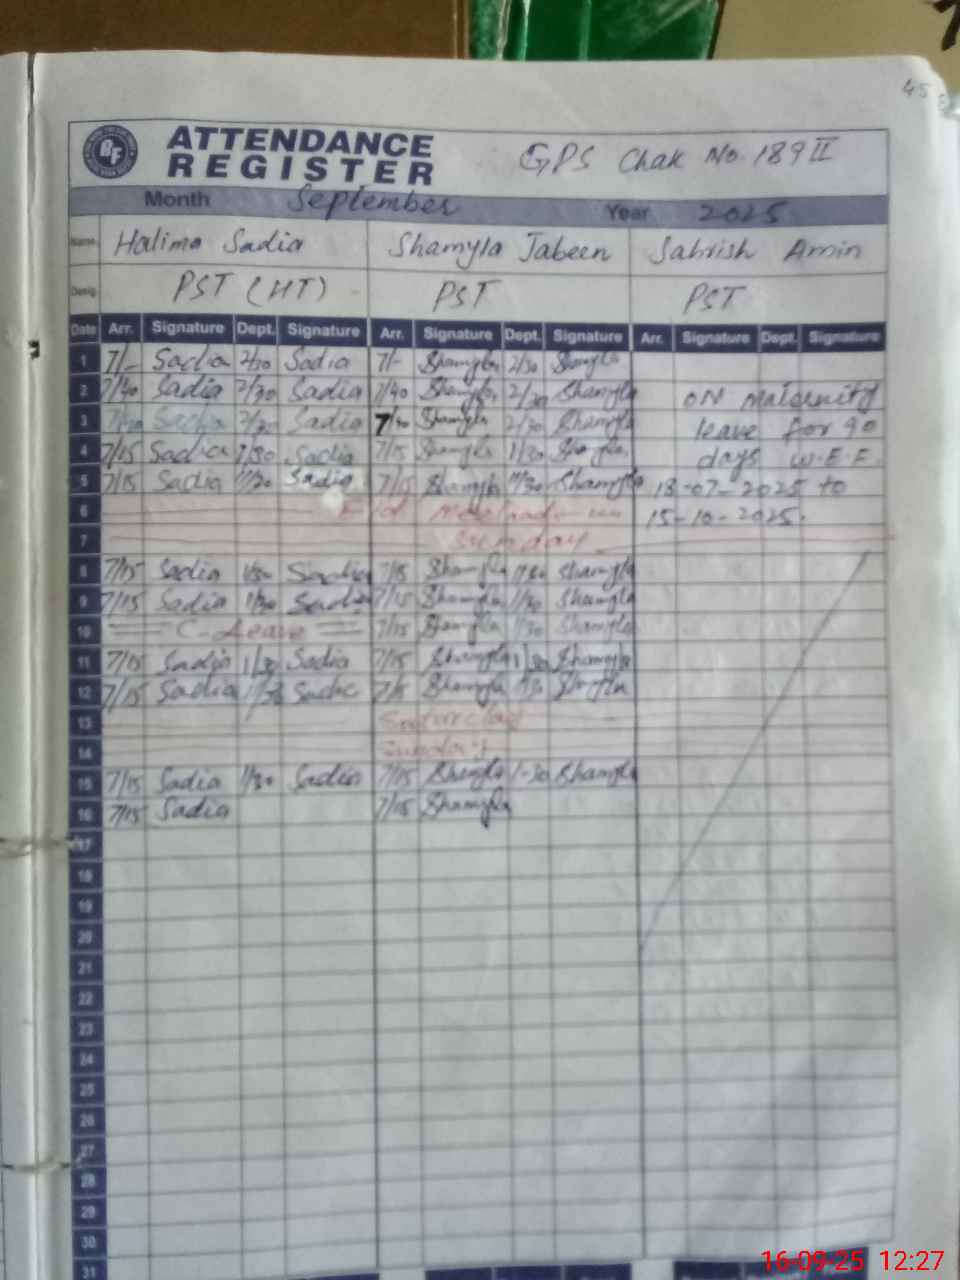 45
BF
ATTENDANCE
REGISTER
GPS Chak No. 189 II
Month September Year 2025
Name Halima Sadia Shamyla Jabeen Sahrish Amin
Desig. PST (HT) PST PST
Date Arr. Signature Dept. Signature Arr. Signature Dept. Signature Arr. Signature Dept. Signature
1 7/- Sadia 2/30 Sadia 7/- Shamyla 2/30 Shamyla
2 7/40 Sadia 2/30 Sadia 7/40 Shamyla 2/30 Shamyla ON Maternity
3 Sadia 2/30 Sadia 7/40 Shamyla 2/30 Shamyla leave for 90
4 7/15 Sadia 1/30 Sadia 7/15 Shamyla 1/30 Shamyla days W.E.F
5 7/15 Sadia Sadia 7/15 Shamyla Shamyla 18-07-2025 to
6 Eid 15-10-2025.
7 Sunday
8 7/15 Sadia 1/30 Sadia 7/15 Shamyla 1/30 Shamyla
9 7/15 Sadia 1/30 Sadia 7/15 Shamyla 1/30 Shamyla
10 C-Leave 7/15 Shamyla 1/30 Shamyla
11 7/15 Sadia 1/30 Sadia 7/15 Shamyla 1/30 Shamyla
12 7/15 Sadia 1/30 Sadia 7/15 Shamyla 1/30 Shamyla
13 Saturday
14 Sunday
15 7/15 Sadia 1/30 Sadia 7/15 Shamyla 1-30 Shamyla
16 7/15 Sadia 7/15 Shamyla
17
18
19
20
21
22
23
24
25
26
27
28
29
30
31
16-09-25 12:27